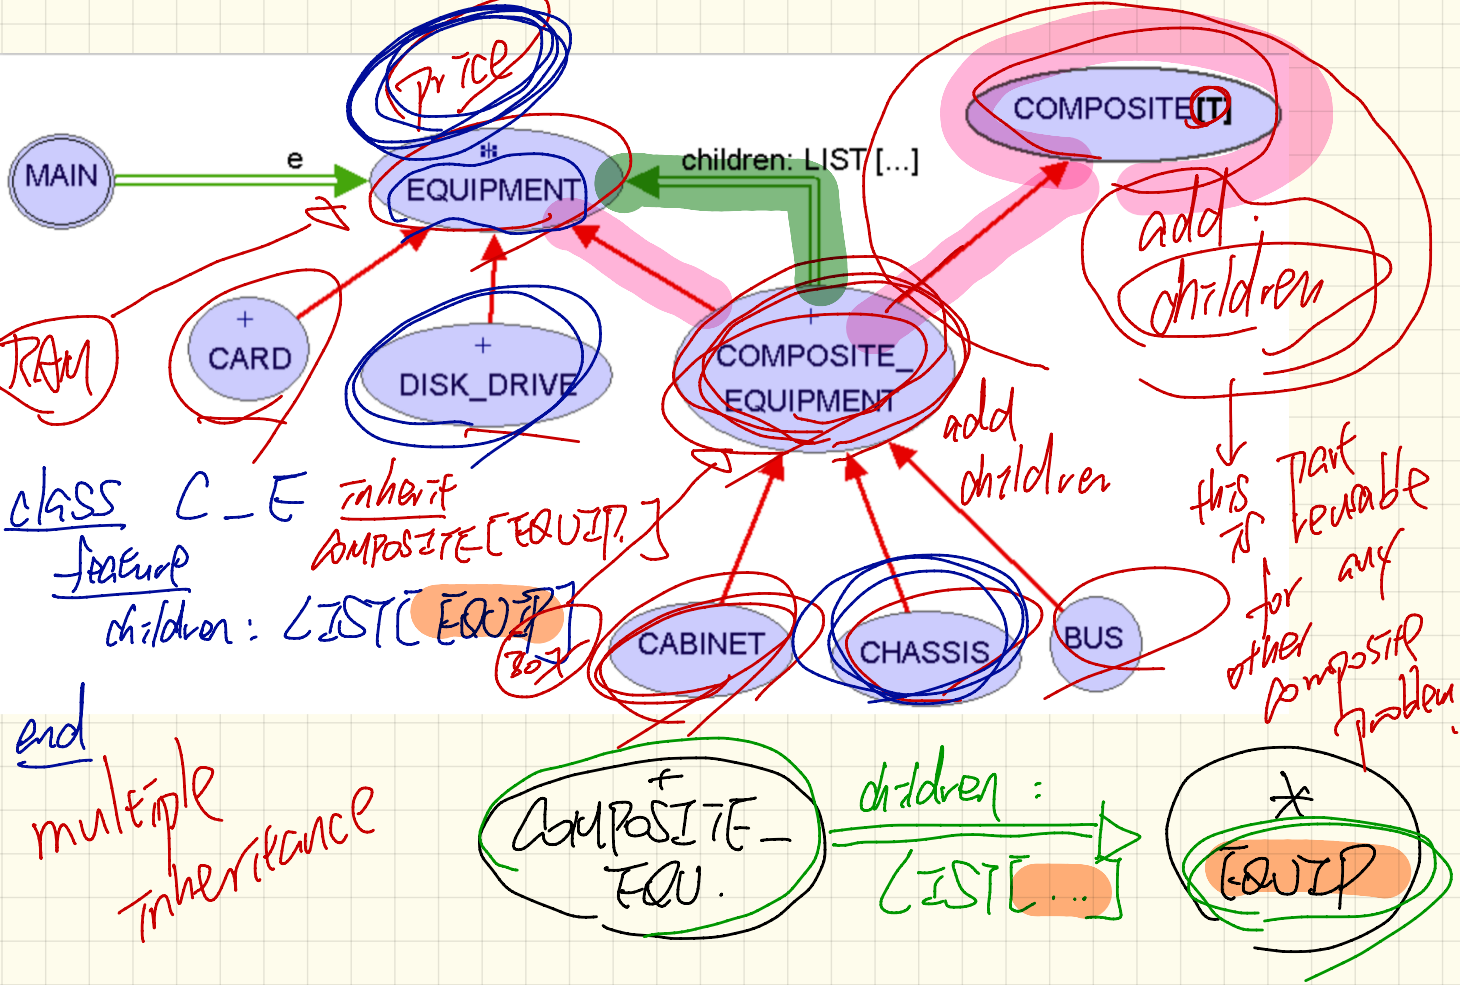 price
COMPOSITE[T]
children: LIST [...]
e
MAIN
*
EQUIPMENT
add :
children
+
CARD
+
DISK_DRIVE
+
COMPOSITE_
EQUIPMENT
RAM
add
children
this
is
part
reusable
for any
other
composite
problem.
class C_E inherit
COMPOSITE[EQUIP.]
feature
children : LIST[EQUIP]
BOX
CABINET
CHASSIS
BUS
end
multiple
inheritance
+
COMPOSITE_
EQU.
children :
LIST[...]
*
EQUIP